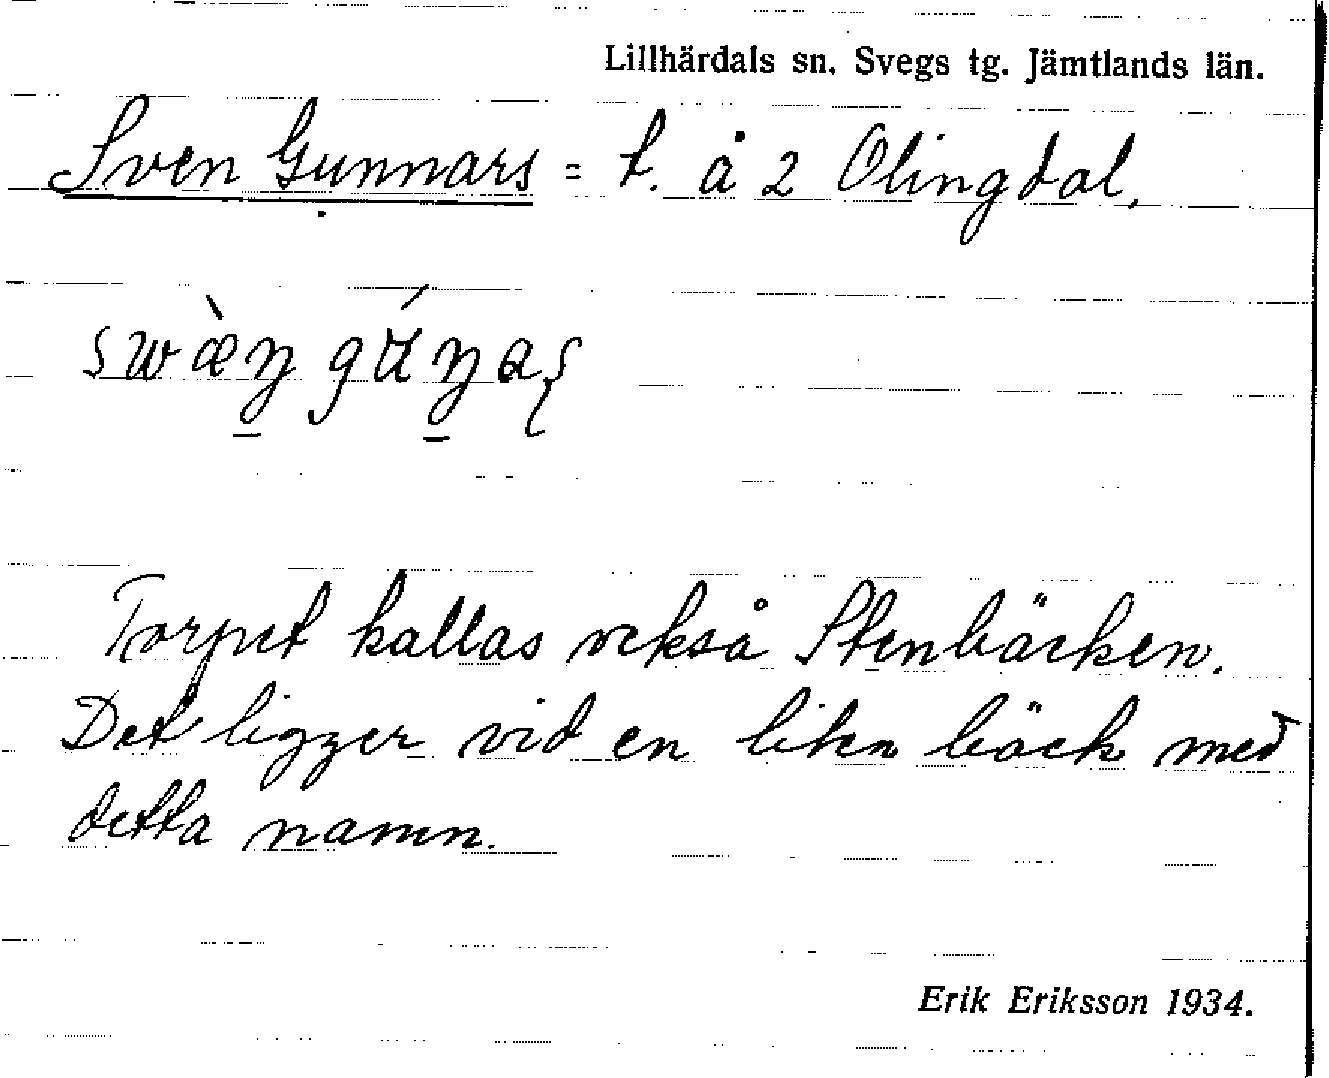 Lillhärdals sn. Svegs tg. Jämtlands län.
Sven Gunnars = t. å 2 Olingdal.
Torpet kallas också Stenbäcken.
Det ligger vid en liten bäck med
detta namn.
Erik Eriksson 1934.